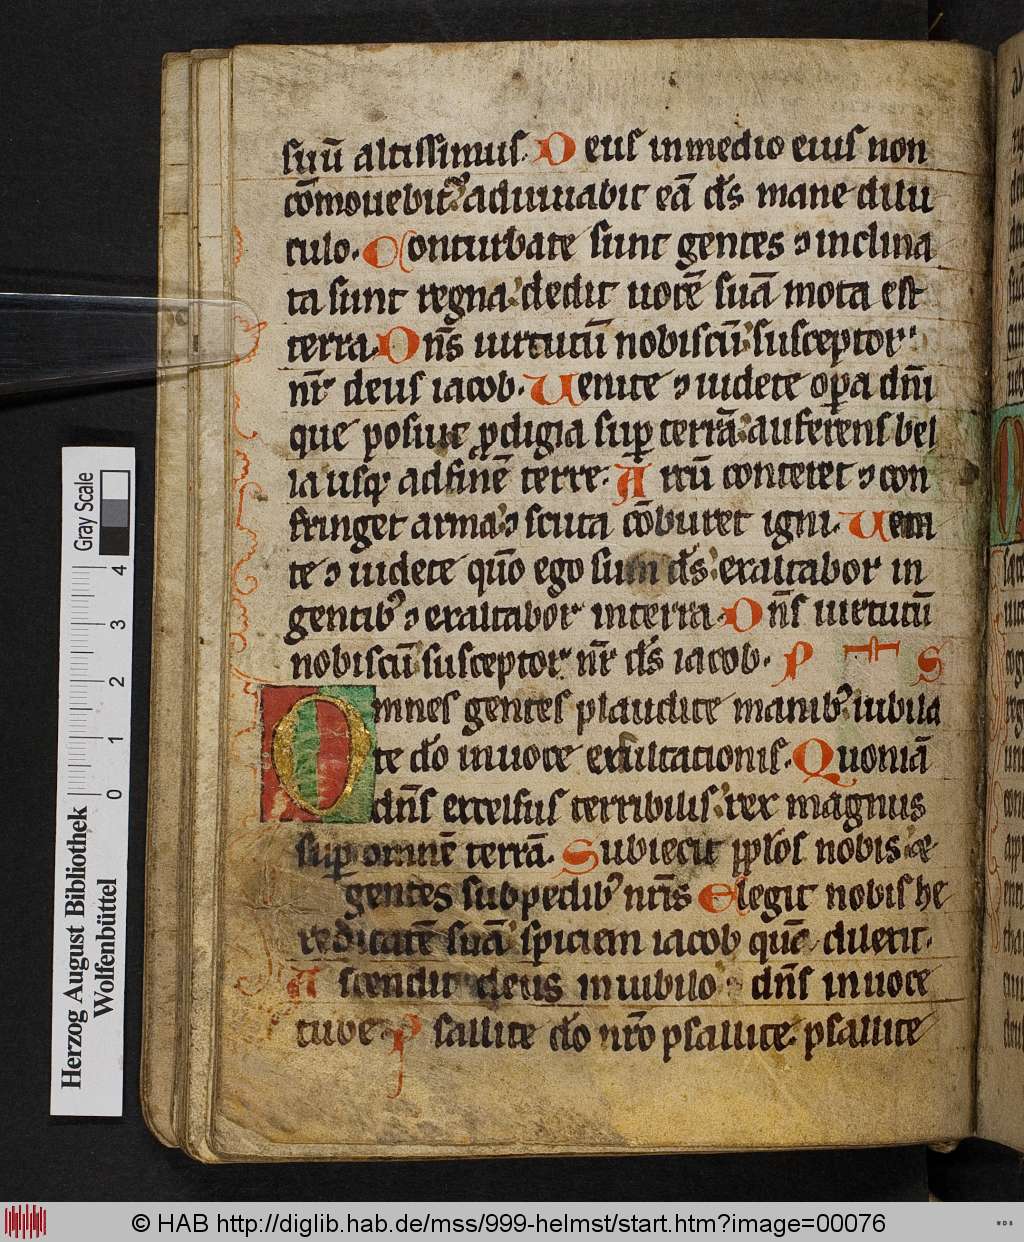 suū altissimus. Deus in medio eius non
cōmouebit᷒ adiuuabit eā ds̄ mane dilu
culo. Conturbate sunt gentes ⁊ inclina
ta sunt regna dedit uocē suā mota est
terra. Dn̄s uirtutū nobiscū susceptor
nr̄ deus iacob. Uenite ⁊ uidete opa dn̄i
que posuit pdigia sup terrā auferens bel
la usq̨ ad finē terre. Arcū conteret ⁊ con
fringet arma ⁊ scuta cōburet igni. Uaca
te ⁊ uidete qm̄o ego sum ds̄ exaltabor in
gentib᷒ ⁊ exaltabor in terra. Dn̄s uirtutū
nobiscū susceptor nr̄ ds̄ iacob. PS
Omnes gentes plaudite manib᷒ iubila
te do in uoce exultationis. Quoniā
dn̄s excelsus terribilis rex magnus
sup omnē terrā. Subiecit pplos nobis et
gentes sub pedib᷒ nr̄is Elegit nobis he
reditatē suā spiciem iacob quā dilexit.
Ascendit deus in iubilo dn̄s in uoce
tube. Psallite do nr̄o psallite. psallite
Herzog August Bibliothek
Wolfenbüttel
Gray Scale
0 1 2 3 4
© HAB http://diglib.hab.de/mss/999-helmst/start.htm?image=00076